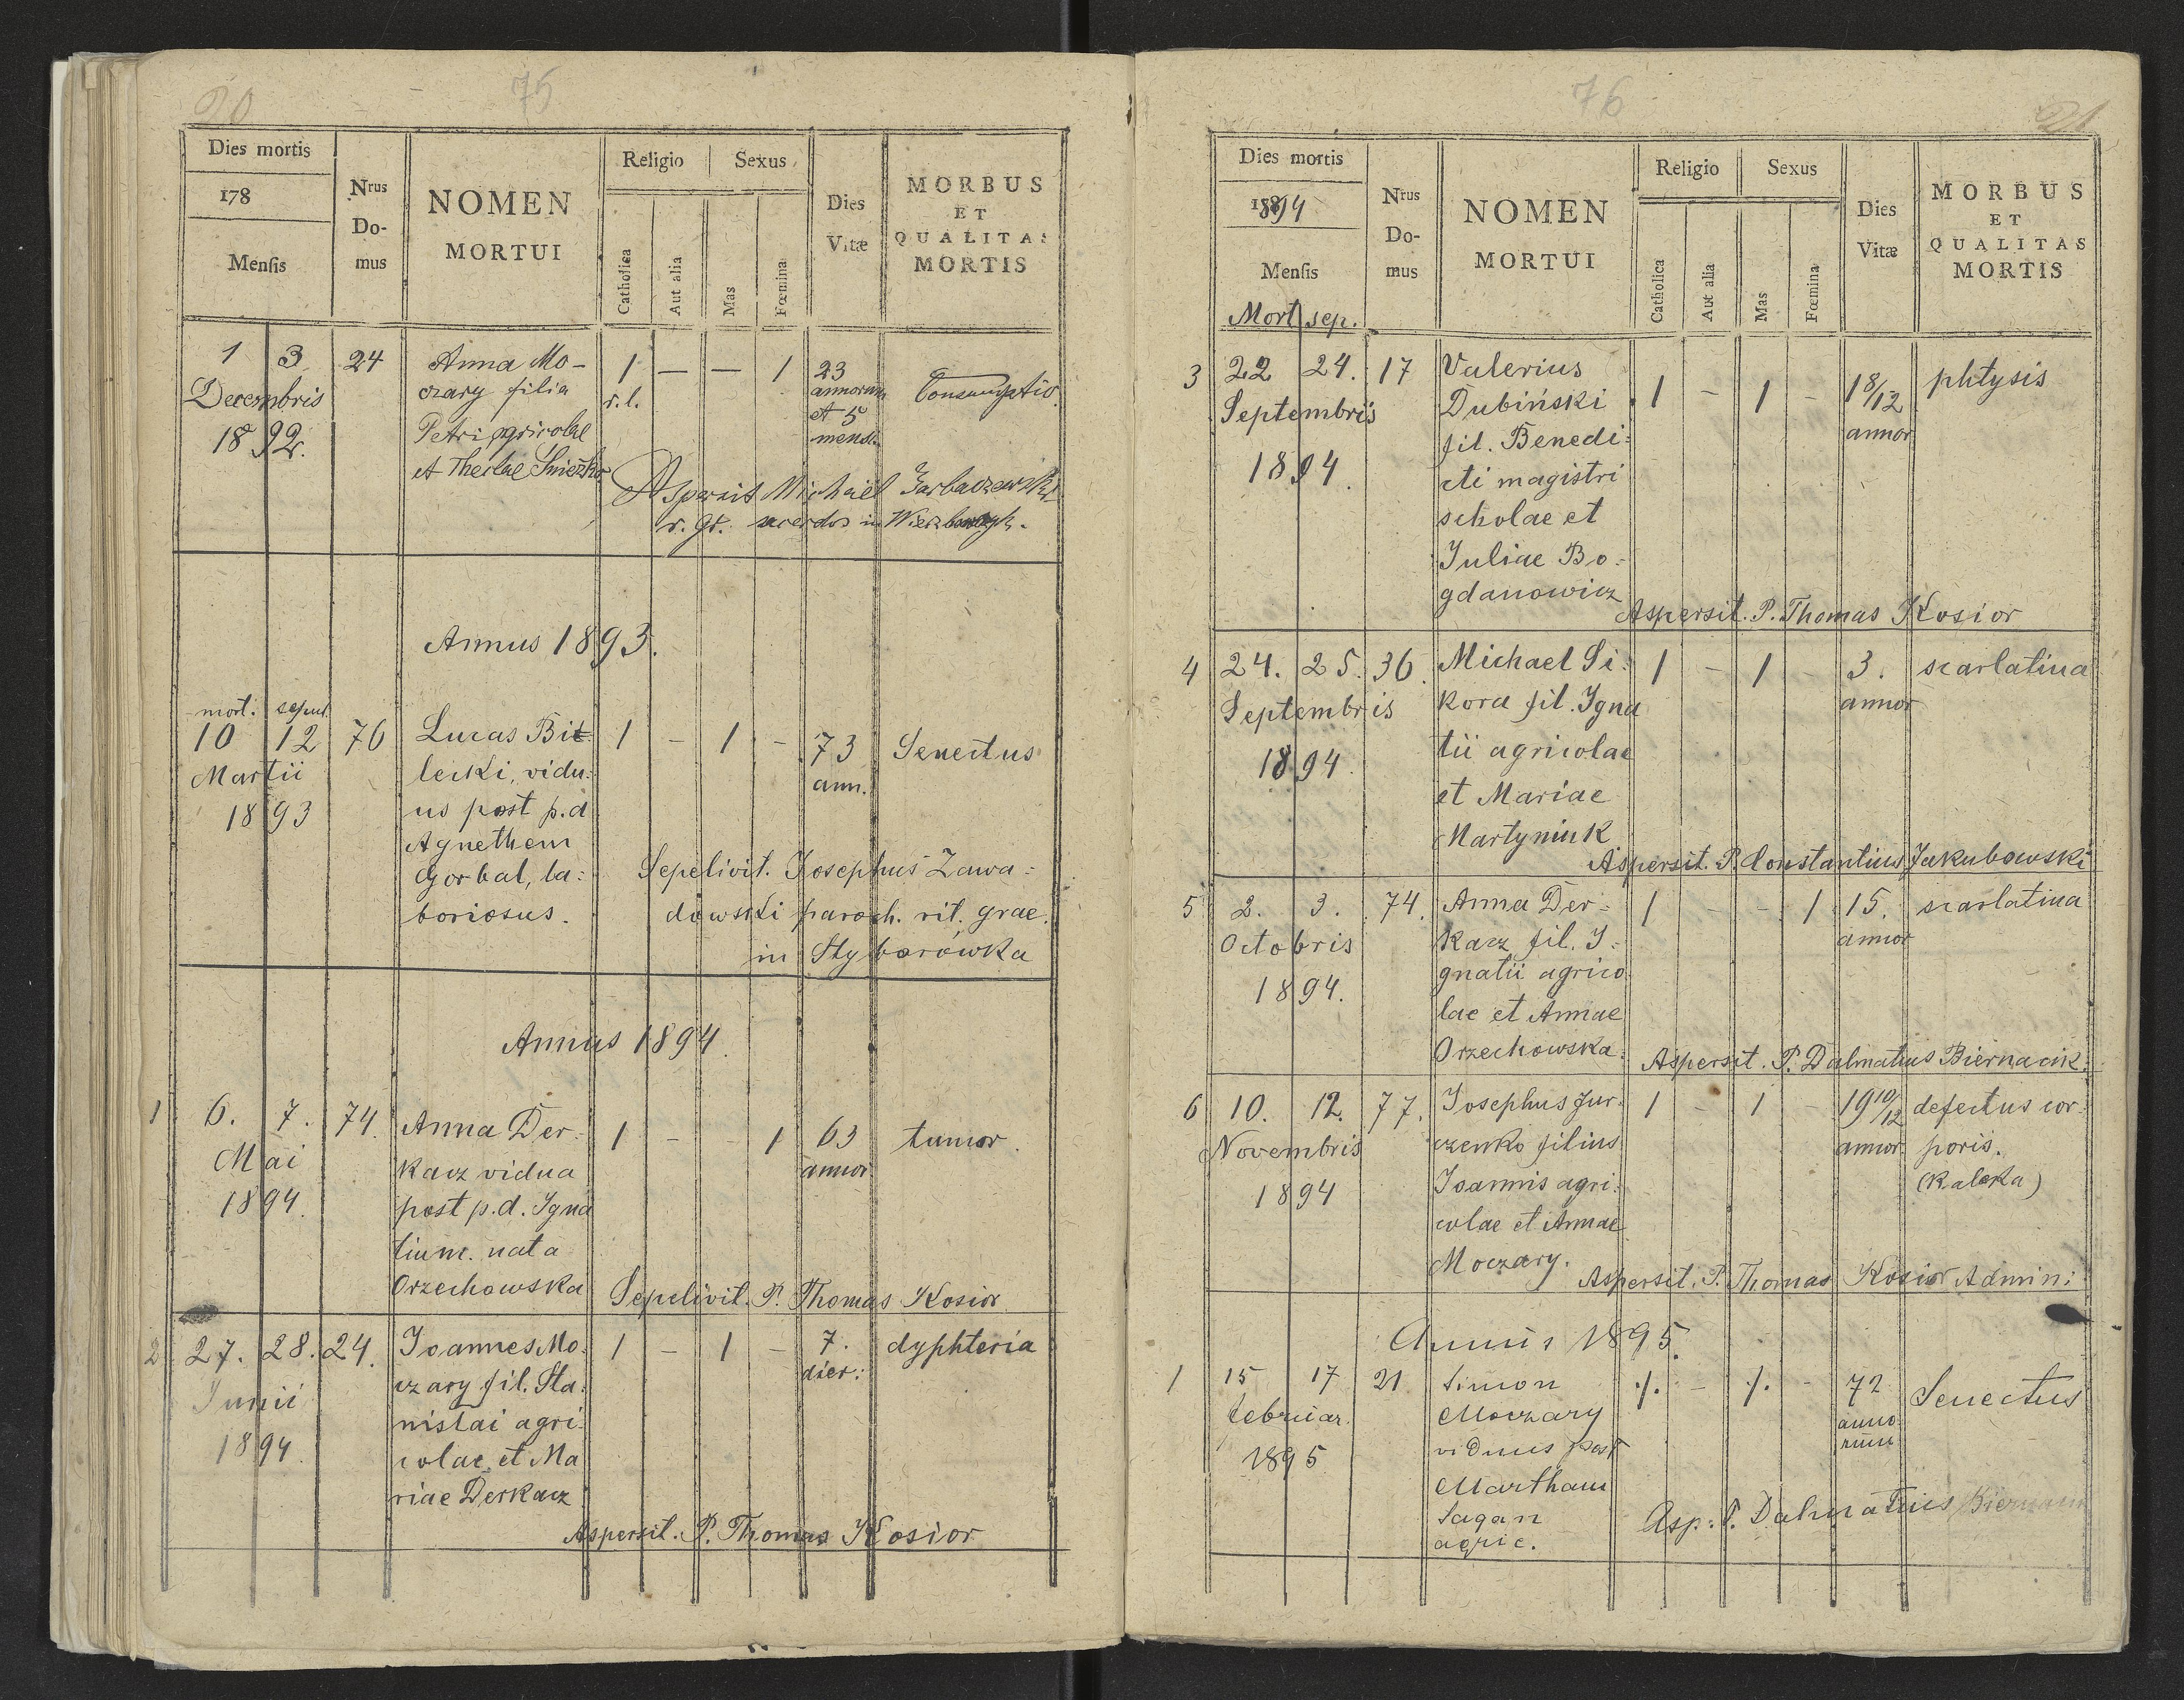 20
75
Dies mortis
178
Mensis
Nrus
Do-
mus
NOMEN
MORTUI
Religio
Sexus
Catholica
Aut alia
Mas
Fœmina
Dies
Vitæ
MORBUS
ET
QUALITAS
MORTIS
1 3. 24 Anna Mo- 1 — — 1 23 Consumptio
Decembris czary filia r.l. annorum
1892. Petri agricolae et 5
mens.
et Theclae Śnieżko
Aspersit Michael Garbaczewski
r. gr. sacerdos in
Annus 1893.
mort. sepul.
10 12 76 Lucas Bit- 1 - 1 - 73 Senectus
Martii lecki, vidu= ann.
1893 us post p.d
Agnethem
Gorbal, la=
boriosus.
Sepelivit. Josephus Zawa=
dowski paroch. rit. grae.
in Stybarówka
Annus 1894.
1 6. 7. 74. Anna Der= 1 - - 1 63 tumor.
Mai kacz vidua annor
1894. post p.d. Igna
tium. nata
Orzechowska
Sepelivit. P. Thomas Kosior
2 27. 28. 24. Joannes Mo= 1 - 1 - 7. dyphteria
Junii czary fil. Sta= dier:
1894. nislai agri=
colae, et Ma
riae Derkacz
Aspersit. P. Thomas Kosior
76
21
Dies mortis
1894
Mensis
Mort sep.
Nrus
Do-
mus
NOMEN
MORTUI
Religio
Sexus
Catholica
Aut alia
Mas
Fœmina
Dies
Vitæ
MORBUS
ET
QUALITAS
MORTIS
3 22 24. 17 Valerius 1 - 1 - 18/12 phtysis
Septembris Dubiński annor
1894. fil. Benedi=
cti magistri
scholae et
Juliae Bo=
gdanowicz
Aspersit. P. Thomas Kosior
4 24. 25. 36. Michael Si= 1 - 1 - 3. scarlatina
Septembris kora fil. Igna annor
1894. tii agricolae
et Mariae
Martyniuk
Aspersit. P. Constantius Jakubowski
5 2. 3. 74. Anna Der= 1 - - 1 15. scarlatina
Octobris kacz fil. I= annor
1894. gnatii agrico
lae et Annae
Orzechowska.
Aspersit. P. Dalmatius Biernacik.
6 10. 12. 77. Josephus Jur= 1 - 1 - 19 10/12 defectus cor=
Novembris czenko filius annor poris.
1894 Joannis agri= (kaleka)
colae et Annae
Moczary.
Aspersit. P. Thomas Kosior Admin:
Annus 1895.
1 15 17 21 Simon ·/. - ·/. - 72 Senectus
februar. Moczary anno
1895 viduus post rum
Martham
Sagan
agric.
Asp: P. Dalmatius